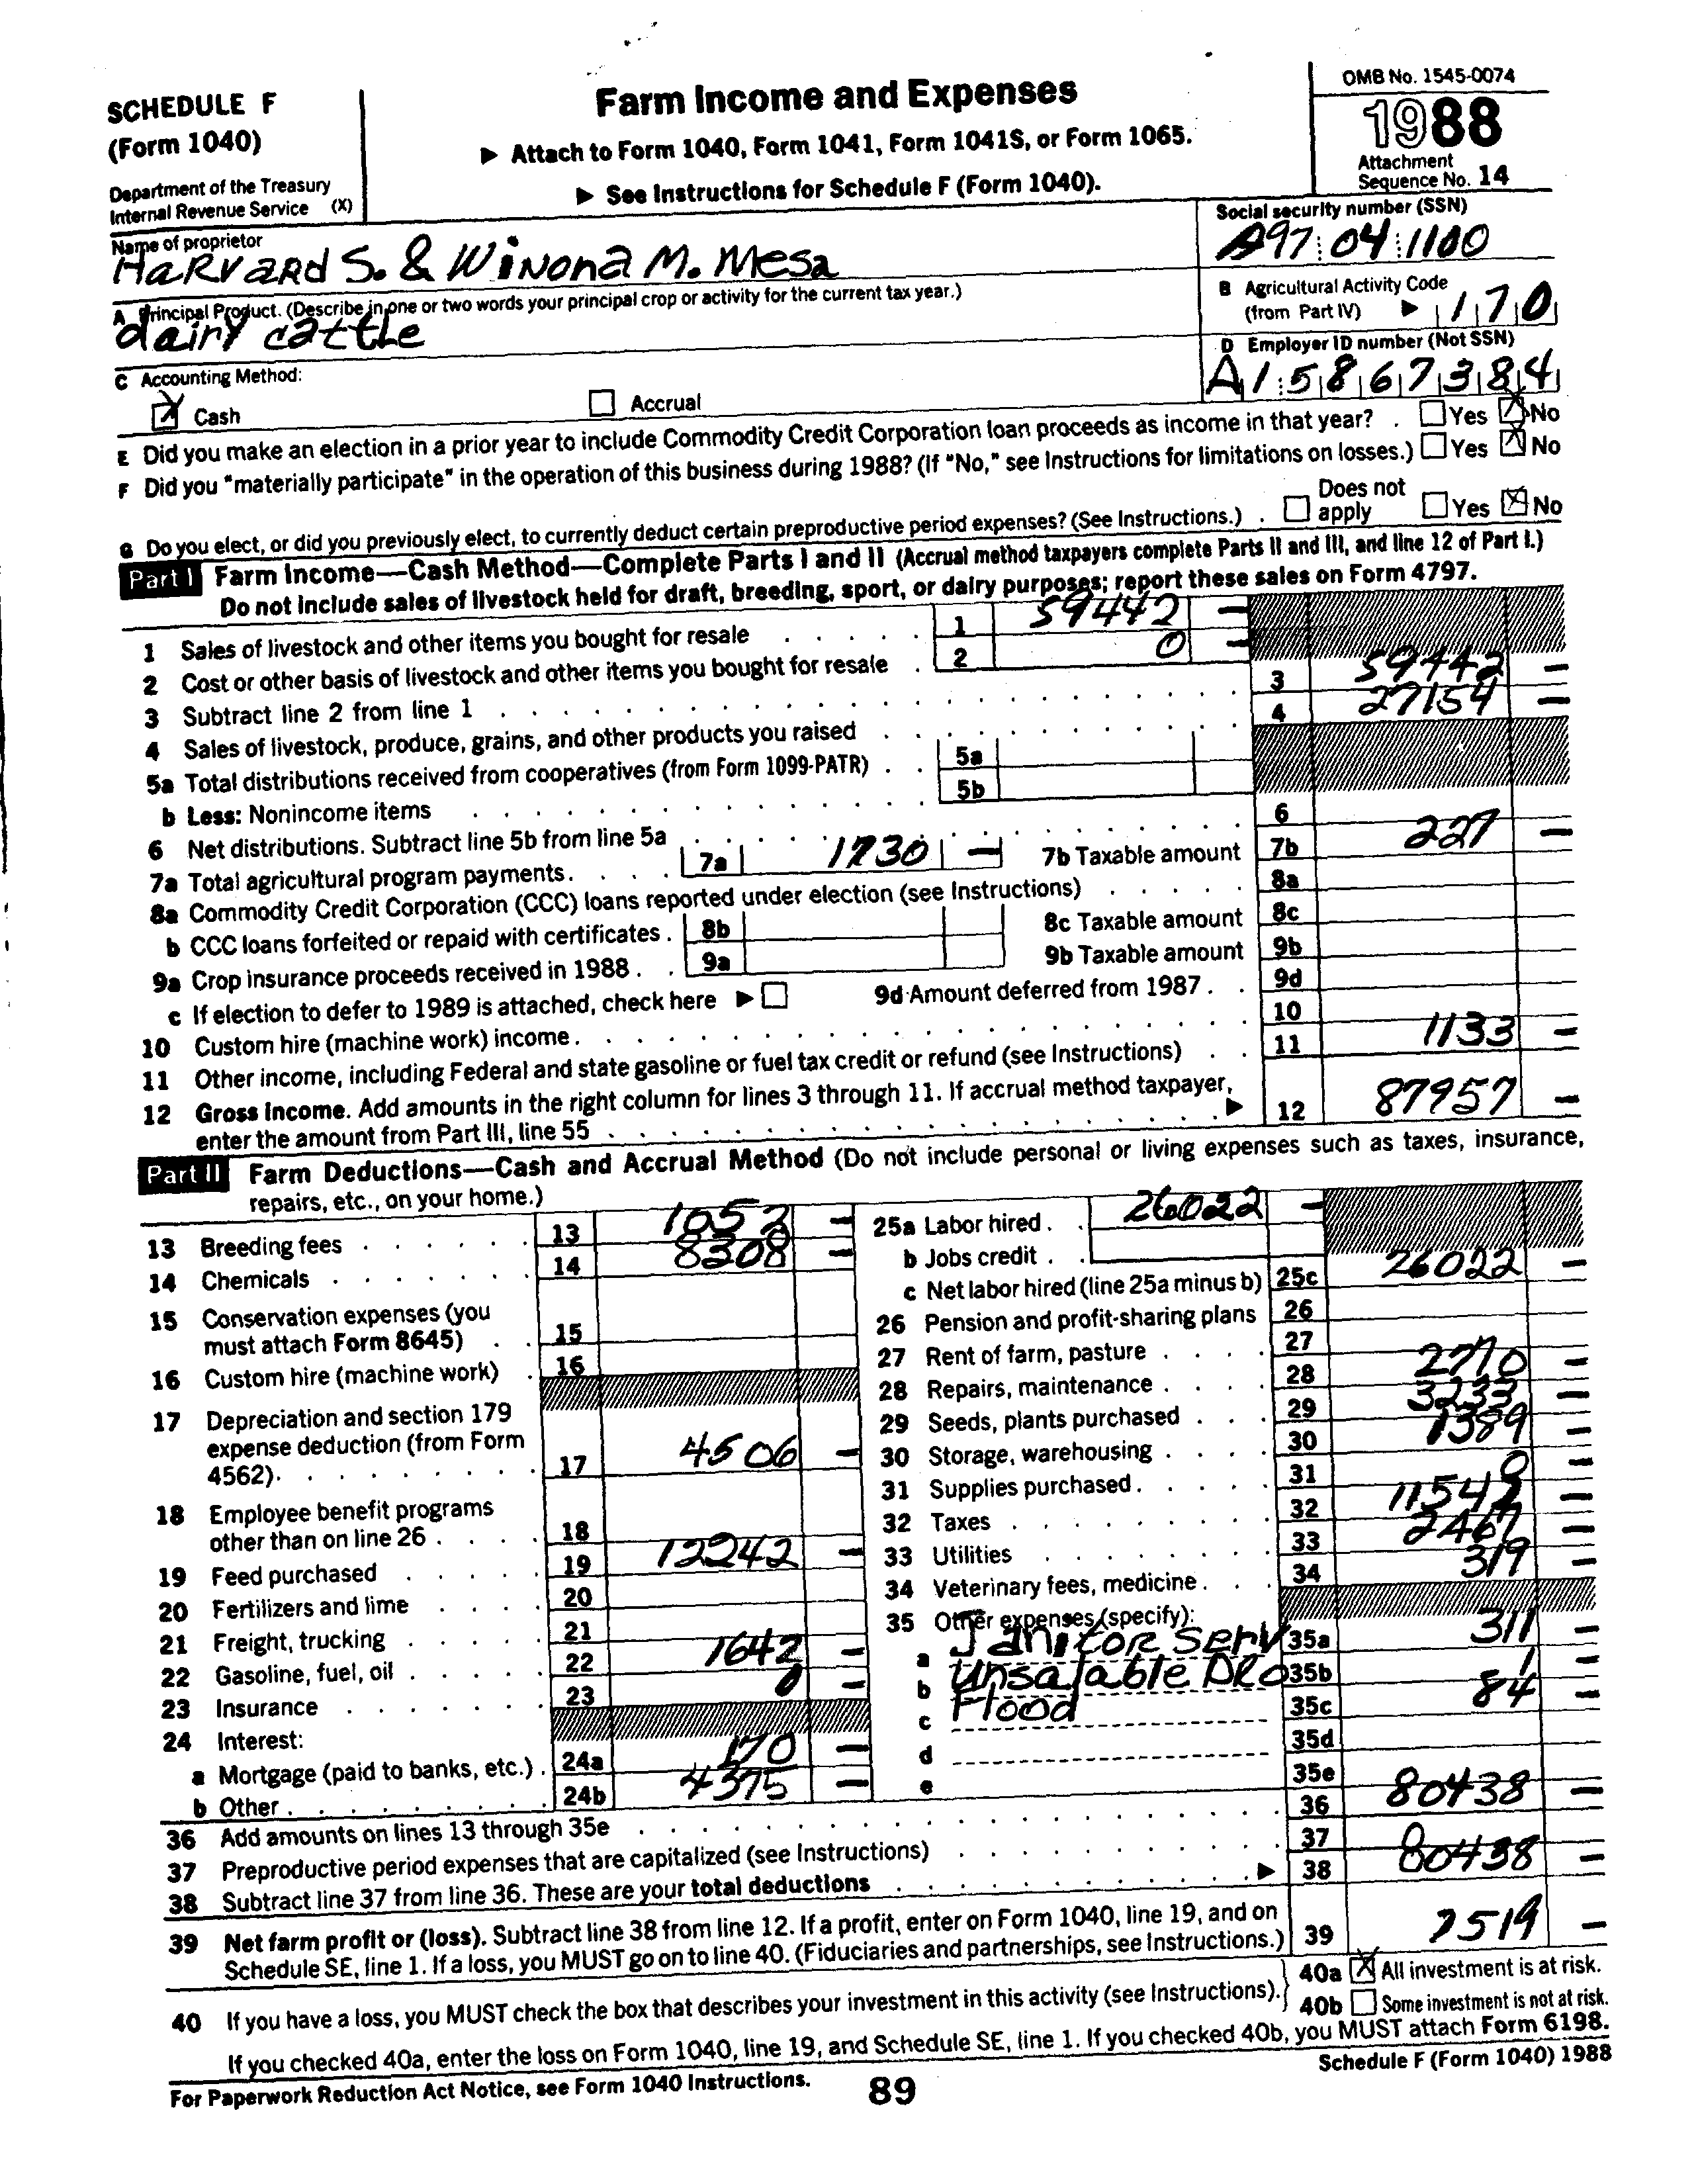 SCHEDULE F
(Form 1040)
Department of the Treasury
Internal Revenue Service (X)
Farm Income and Expenses
▶ Attach to Form 1040, Form 1041, Form 1041S, or Form 1065.
▶ See Instructions for Schedule F (Form 1040).
OMB No. 1545-0074
1988
Attachment
Sequence No. 14
Name of proprietor
Harvard S. & Winona M. Mesa
Social security number (SSN)
A97 04 1100
A Principal Product. (Describe in one or two words your principal crop or activity for the current tax year.)
dairy cattle
B Agricultural Activity Code
(from Part IV) ▶ 170
C Accounting Method:
X Cash Accrual
D Employer ID number (Not SSN)
A1 5867384
E Did you make an election in a prior year to include Commodity Credit Corporation loan proceeds as income in that year? . Yes X No
F Did you "materially participate" in the operation of this business during 1988? (If "No," see Instructions for limitations on losses.) Yes X No
G Do you elect, or did you previously elect, to currently deduct certain preproductive period expenses? (See Instructions.) . Does not apply Yes X No
Part I Farm Income—Cash Method—Complete Parts I and II (Accrual method taxpayers complete Parts II and III, and line 12 of Part I.)
Do not include sales of livestock held for draft, breeding, sport, or dairy purposes; report these sales on Form 4797.
1 Sales of livestock and other items you bought for resale 1 59442 —
2 Cost or other basis of livestock and other items you bought for resale 2 0 —
3 Subtract line 2 from line 1 3 59442 —
4 Sales of livestock, produce, grains, and other products you raised 4 27154 —
5a Total distributions received from cooperatives (from Form 1099-PATR) 5a
b Less: Nonincome items 5b
6 Net distributions. Subtract line 5b from line 5a 6
7a Total agricultural program payments. 7a 1730 — 7b Taxable amount 7b 227 —
8a Commodity Credit Corporation (CCC) loans reported under election (see Instructions) 8a
b CCC loans forfeited or repaid with certificates. 8b 8c Taxable amount 8c
9a Crop insurance proceeds received in 1988. 9a 9b Taxable amount 9b
c If election to defer to 1989 is attached, check here ▶ 9d Amount deferred from 1987. 9d
10 Custom hire (machine work) income. 10
11 Other income, including Federal and state gasoline or fuel tax credit or refund (see Instructions) 11 1133 —
12 Gross Income. Add amounts in the right column for lines 3 through 11. If accrual method taxpayer,
enter the amount from Part III, line 55 ▶ 12 87957 —
Part II Farm Deductions—Cash and Accrual Method (Do not include personal or living expenses such as taxes, insurance,
repairs, etc., on your home.)
13 Breeding fees 13 1052 —
14 Chemicals 14 8308 —
15 Conservation expenses (you
must attach Form 8645) 15
16 Custom hire (machine work) 16
17 Depreciation and section 179
expense deduction (from Form
4562). 17 4506 —
18 Employee benefit programs
other than on line 26 18
19 Feed purchased 19 12242 —
20 Fertilizers and lime 20
21 Freight, trucking 21
22 Gasoline, fuel, oil 22 1642 —
23 Insurance 23 0 —
24 Interest:
a Mortgage (paid to banks, etc.) 24a 170 —
b Other 24b 4375 —
25a Labor hired. 26022 —
b Jobs credit
c Net labor hired (line 25a minus b) 25c 26022 —
26 Pension and profit-sharing plans 26
27 Rent of farm, pasture 27
28 Repairs, maintenance 28 2770 —
29 Seeds, plants purchased 29 3233 —
30 Storage, warehousing 30 1389 —
31 Supplies purchased. 31 0 —
32 Taxes 32 11542 —
33 Utilities 33 2467 —
34 Veterinary fees, medicine. 34 319 —
35 Other expenses (specify):
a Janitor Serv 35a 311 —
b Unsalable Dro 35b 1 —
c Flood 35c 84 —
d 35d
e 35e
36 Add amounts on lines 13 through 35e 36 80438 —
37 Preproductive period expenses that are capitalized (see Instructions) 37 0
38 Subtract line 37 from line 36. These are your total deductions ▶ 38 80438 —
39 Net farm profit or (loss). Subtract line 38 from line 12. If a profit, enter on Form 1040, line 19, and on
Schedule SE, line 1. If a loss, you MUST go on to line 40. (Fiduciaries and partnerships, see Instructions.) 39 7519 —
40 If you have a loss, you MUST check the box that describes your investment in this activity (see Instructions).
40a X All investment is at risk.
40b Some investment is not at risk.
If you checked 40a, enter the loss on Form 1040, line 19, and Schedule SE, line 1. If you checked 40b, you MUST attach Form 6198.
For Paperwork Reduction Act Notice, see Form 1040 Instructions.
89
Schedule F (Form 1040) 1988